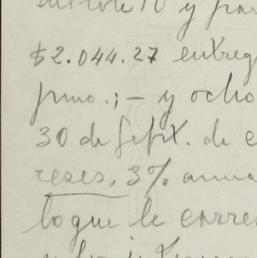 y
$2.044.27 entreg
pmo.; – y ocho
30 de Sept. de e
reses, 3% anua
lo que le corre